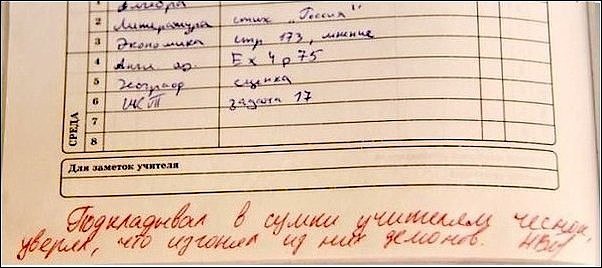 Алгебра
2 Литература стих „Россия"
3 Экономика стр 173, мнение
4 Англ яз. Ex 4 p 75
5 географ сценка
6 задача 17
7
8
СРЕДА
Для заметок учителя
Подкладывал в сумки учителям чеснок,
уверял, что изгоняет из них демонов.